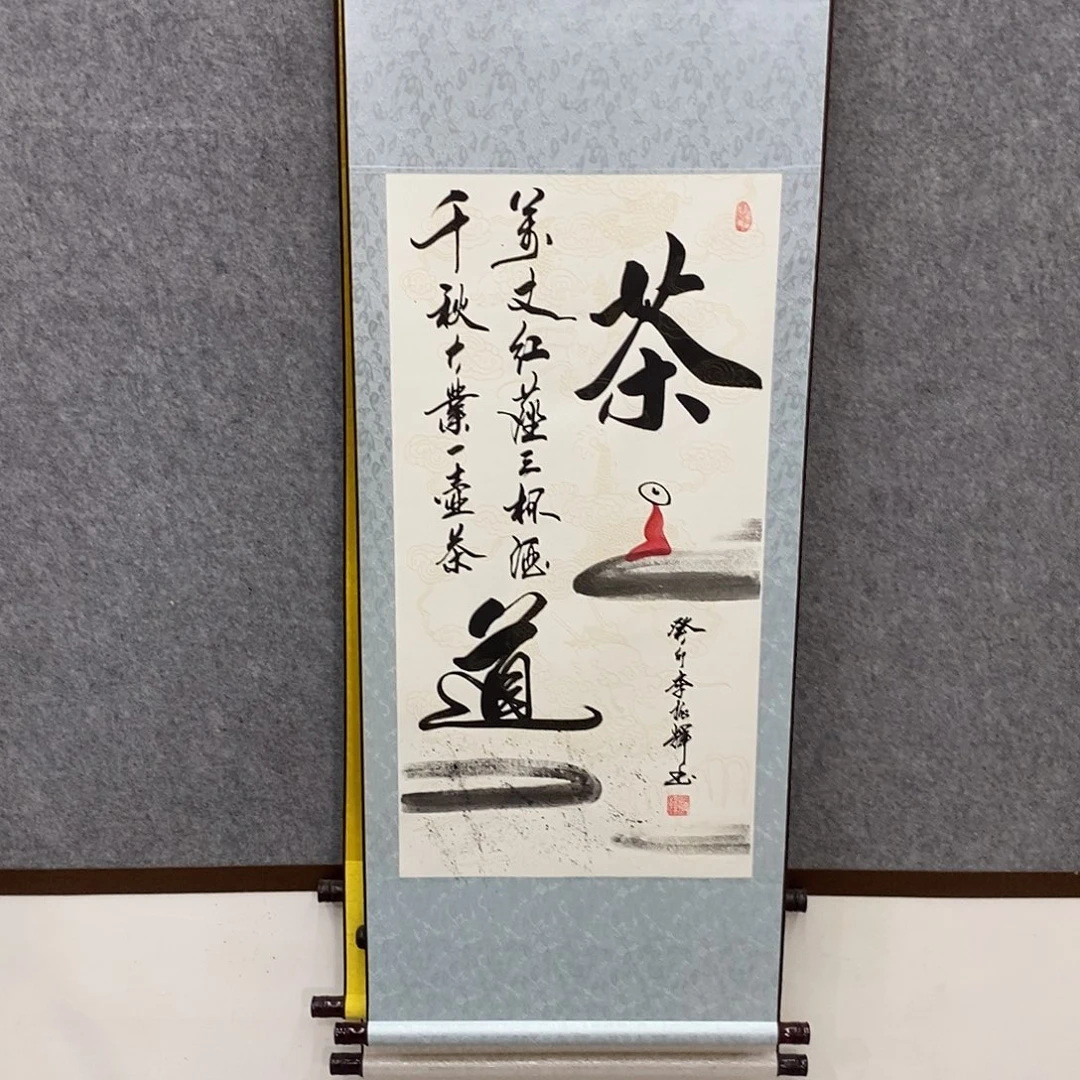 茶
道
萬丈红塵三杯酒
千秋大業一壺茶
癸卯李振輝书